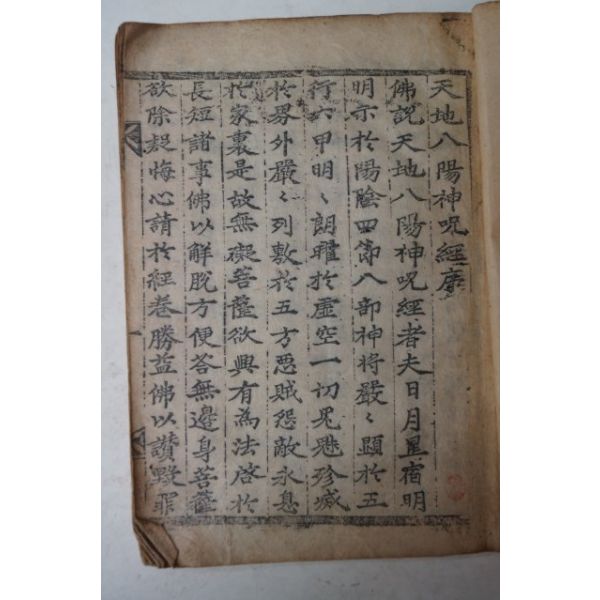 天地八陽神呪經序
佛說天地八陽神呪經者夫日月星宿明
明示於陽陰四節八部神將嚴〻顯於五
行六甲明〻朗曜於虛空一切鬼魅殄滅
於界外嚴〻列敷於五方惡賊怨敵永息
於家裏是故無礙菩薩欲興有為法啓於
長短諸事佛以解脫方便答無邊身菩薩
欲除疑悔心請於經卷勝益佛以讚毀罪